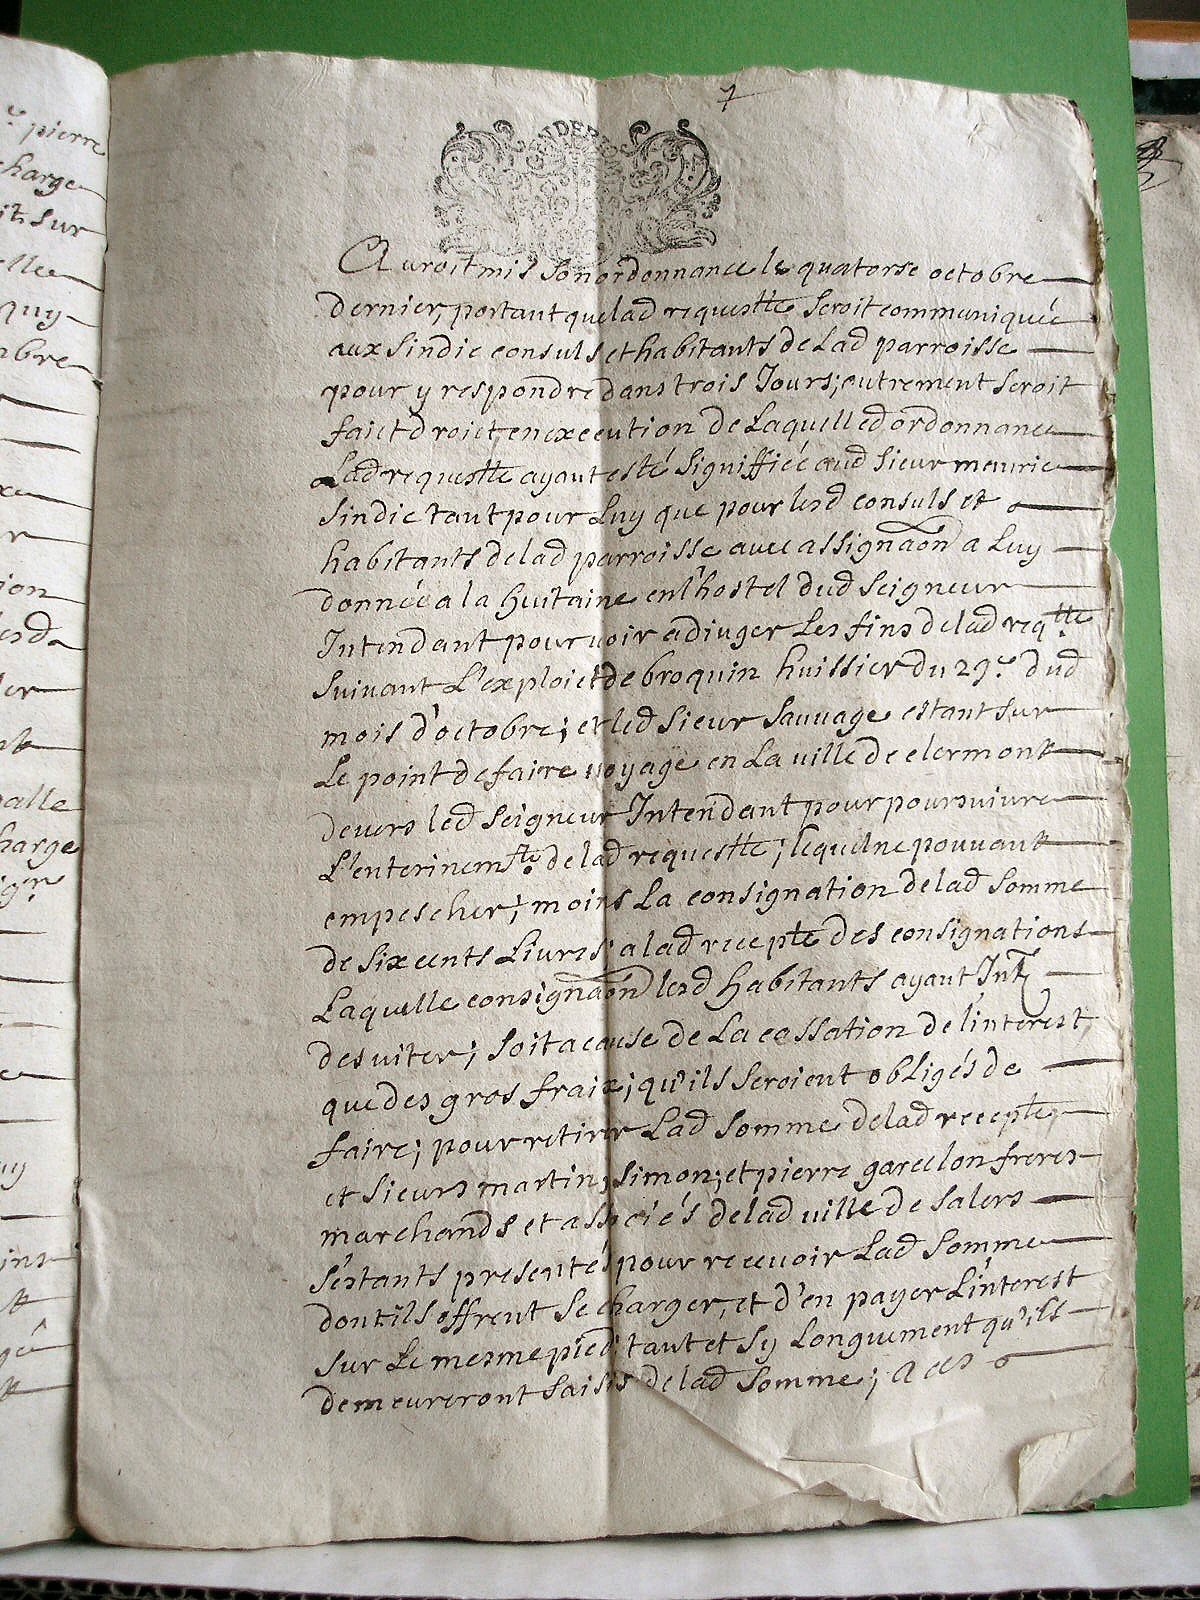 7
Auroit mis son ordonnance le quatorse octobre
dernier, portant que lad requeste seroit communiquée
aux sindic consuls et habitants de Lad parroisse
pour y respondre dans trois Jours; autrement seroit
faict droict, en execution de Laquelle d ordonnance
Lad requeste ayant esté signiffiée aud sieur meurie
sindic tant pour Luy que pour lesd consuls et
habitants de lad parroisse avec assignãon a Luy
donnée a la huitaine en l'hostel dud seigneur
Intendant pour voir adiuger Les fins de lad reqtte
suivant L'exploict de broquin huissier du 29e dud
mois d'octobre; et led sieur sauvage estant sur
Le point de faire voyage en La ville de clermont
devers led seigneur Intendant pour poursuivre
L'enterinemt de lad requeste; lequel ne pouvant
empescher; moins La consignation de lad somme
de six cents Livres a lad recepte des consignations
Laquelle consignãon lesd habitants ayant Int
desviter; soit a cause de La cessation de l'interest
que des gros fraix; qu'ils seroient obligés de
faire; pour retirer Lad somme de lad recepte
et sieurs martin, simon; et pierre garcelon freres
marchands et associés de lad ville de salers
s'estants presentés pour recevoir Lad somme
dont ils offrent se charger, et d'en payer L'interest
sur Le mesme pied; tant et sy Longuement qu'ils
demeureront saisis de lad somme; A ces
pierre
charge
sur
elle
ion
lesd
alle
harge